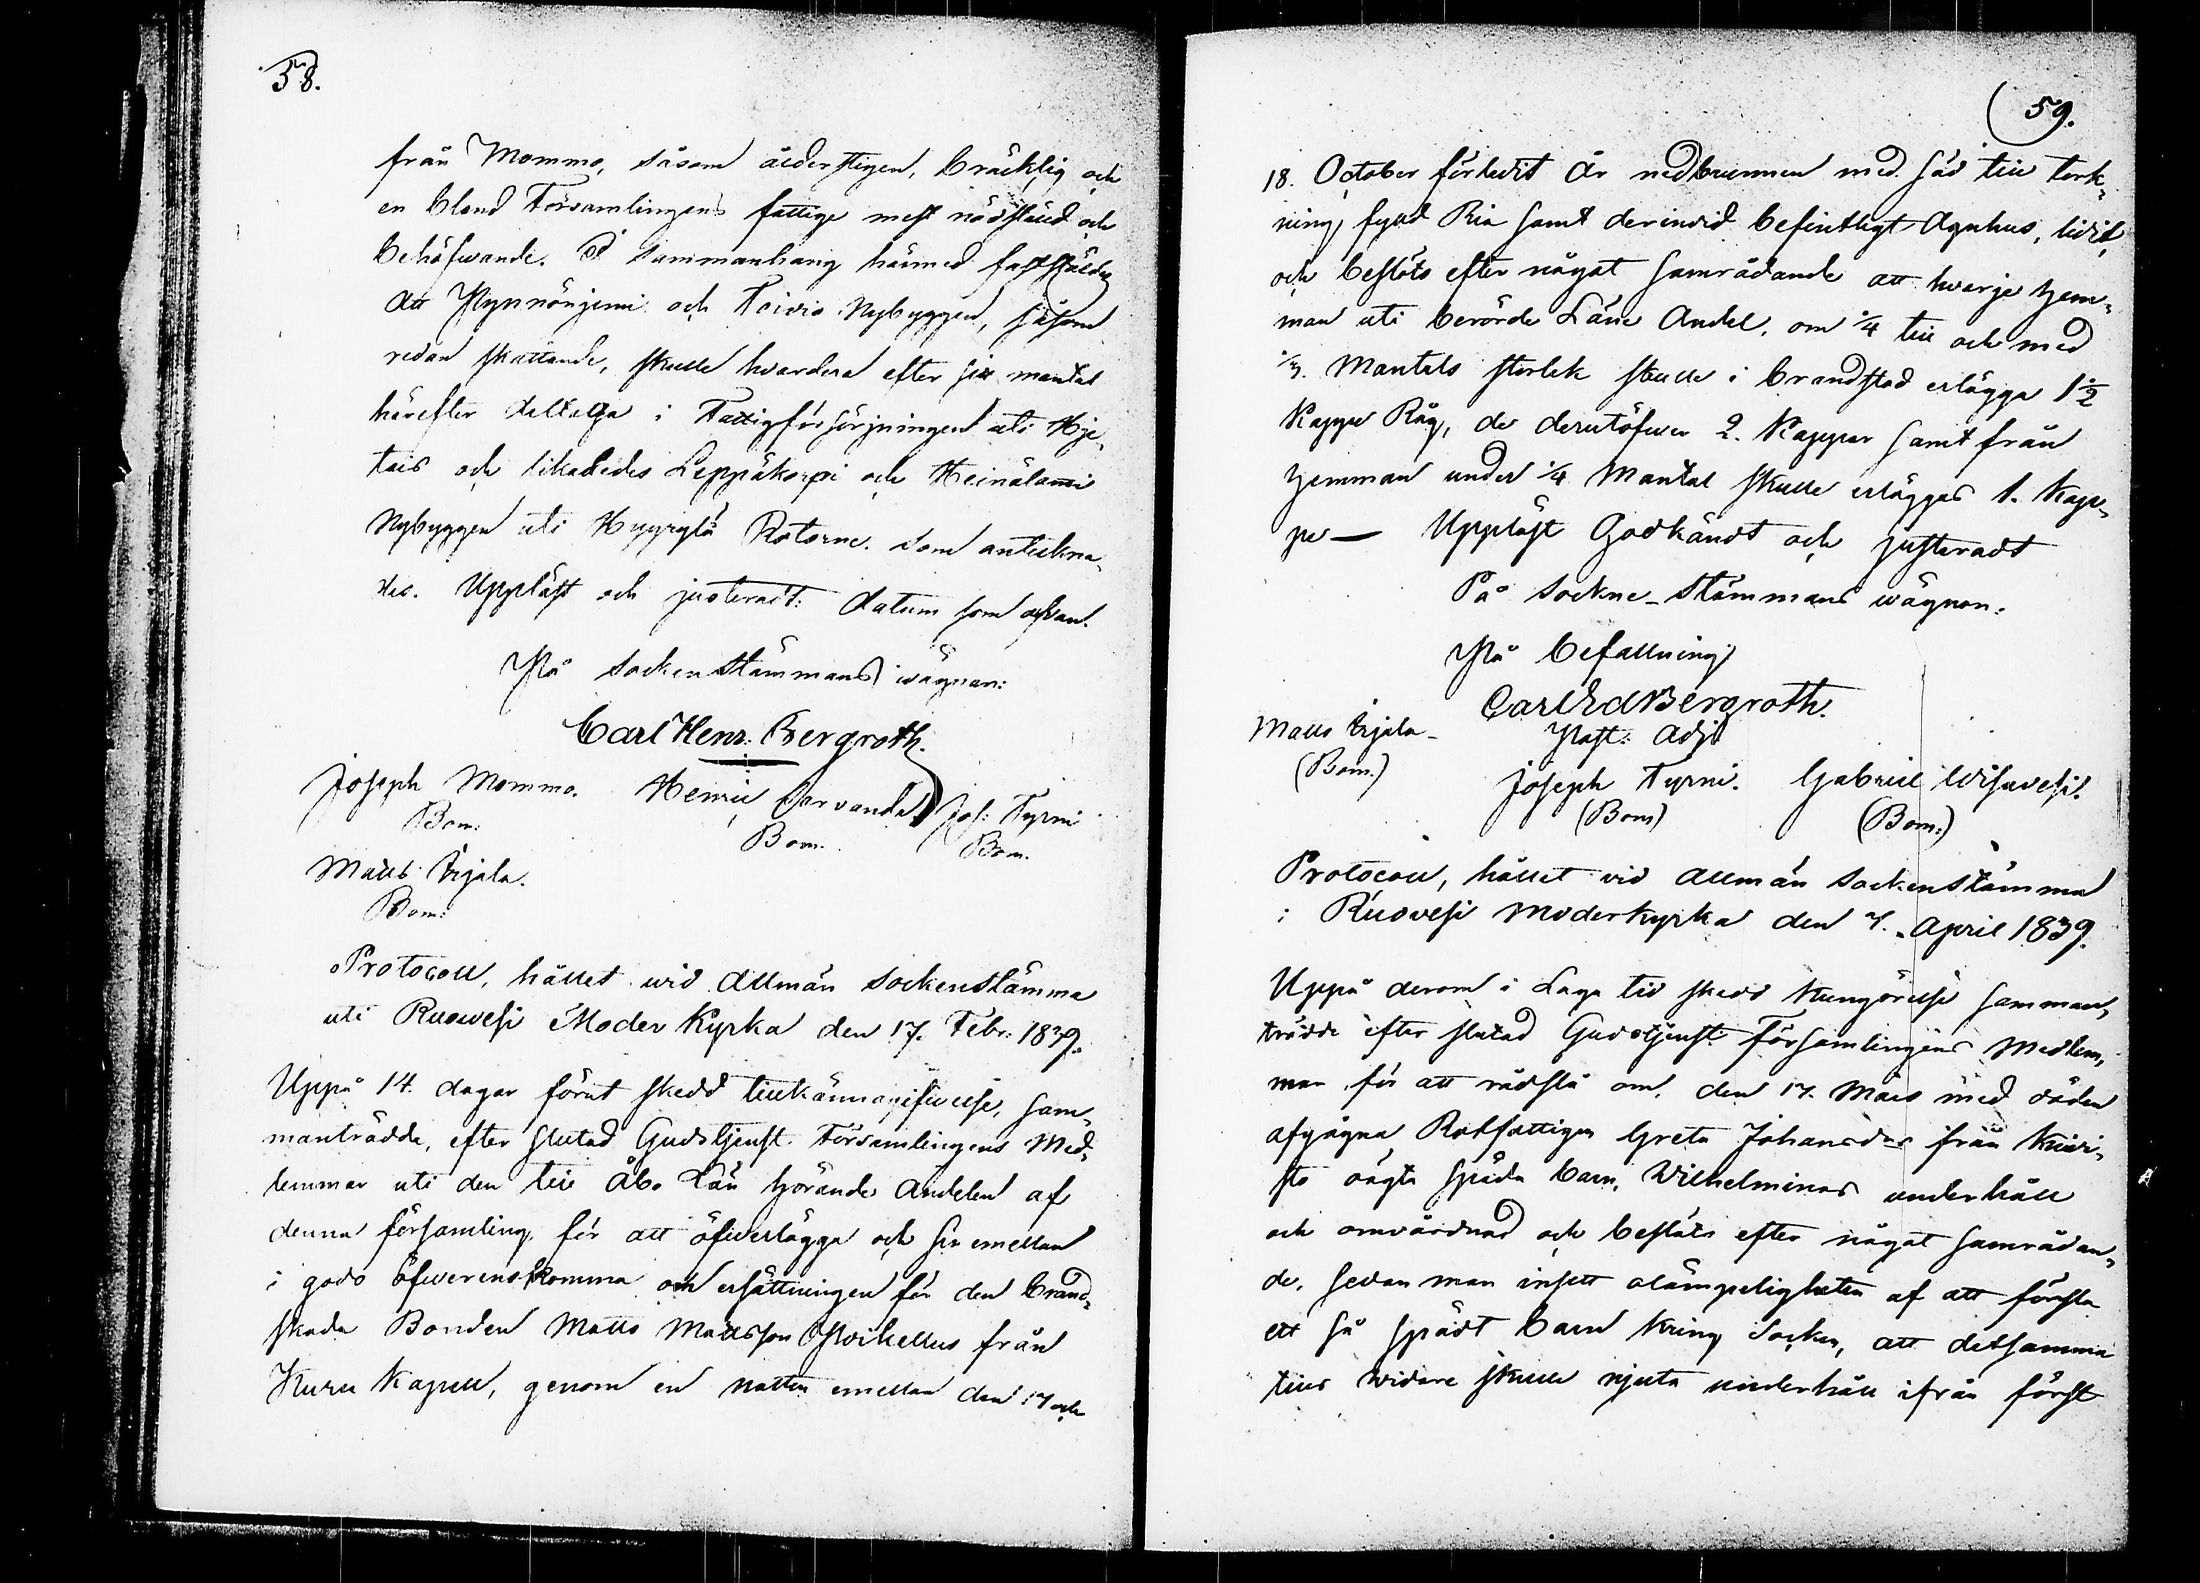 58.
från Mommo, såsom ålderstigen, bräcklig och
en bland Församlingens fattige mest nödstäld och
behöfwande. I sammanhang härmed fastställdes
att Pynnönjemi och Toivio Nybyggen, såsom
redan skattande, skulle hvardera efter sitt mantal
härefter deltaga i Fattigförsörjningen uti Hje-
tais och likaledes Leppäkorpi och Heinälami
Nybyggen uti Hyyrylä Rotorne. som anteckna-
des. Uppläst och justeradt: datum som ofvan.
På Sockenstämmans wägnar:
Carl Henr. Bergroth.
Joseph Mommo. Henric Sarvanda Jos: Tyrni
Bom: Bom. Bom.
Matts Erjala.
Bom:
Protocoll, hållet wid Allmän Sockenstämma
uti Ruowesi Moder Kyrka den 17. Febr: 1839.
Uppå 14. dagar förut skedd tillkännagifwelse, sam-
manträdde, efter slutad Gudstjenst Församlingens Med-
lemmar uti den till Åbo Län hörande Andelen af
denna församling, för att öfwerlägga och sin emellan
i godo öfwerenskomma om ersättningen för den brand-
skada Bonden Matts Mattsson från
Kuru Kapell, genom en natten emellan den 17 och
59.
18. October förledit år nedbrunnen med säd till tork-
ning fyld Ria samt derinvid befintligt Agnhus, lidit,
och beslöts efter något samrådande att hvarje hem-
man uti berörde Läne Andel, om 1/4 till och med
1/3. Mantals storlek skulle i brandstod erlägga 1 1/2
Kappe Råg, de derutöfwer 2. Kappar samt från
hemman under 1/4 Mantal skulle erläggas 1. Kap-
pe — Uppläst Godkändt och justeradt
På Sockne-Stämmans wägnar:
På befallning
Carl Ed Bergroth.
Matts Erjala - Past: Adj:
(Bom.) Joseph Tyrni. Gabriel Wisuvesi.
(Bom) (Bom:)
Protocoll, hållet vid allmän Sockenstämma
i Ruovesi Moderkyrka den 7. April 1839.
Uppå derom i Laga tid skedd Kungörelse samman-
trädde efter slutad Gudstjenst Församlingens Medlem-
mar för att rådslå om, den 17. Mars med döden
afgågna Rotfattigen Greta Johansdr från Kuivi-
sto oägta späda barn, Wilhelminas underhåll
och omvårdnad och beslöts efter något samrådan-
de, sedan man insett olämpeligheten af att försla
ett så spädt barn kring Socken, att detsamma
tills vidare skulle njuta underhåll ifrån först